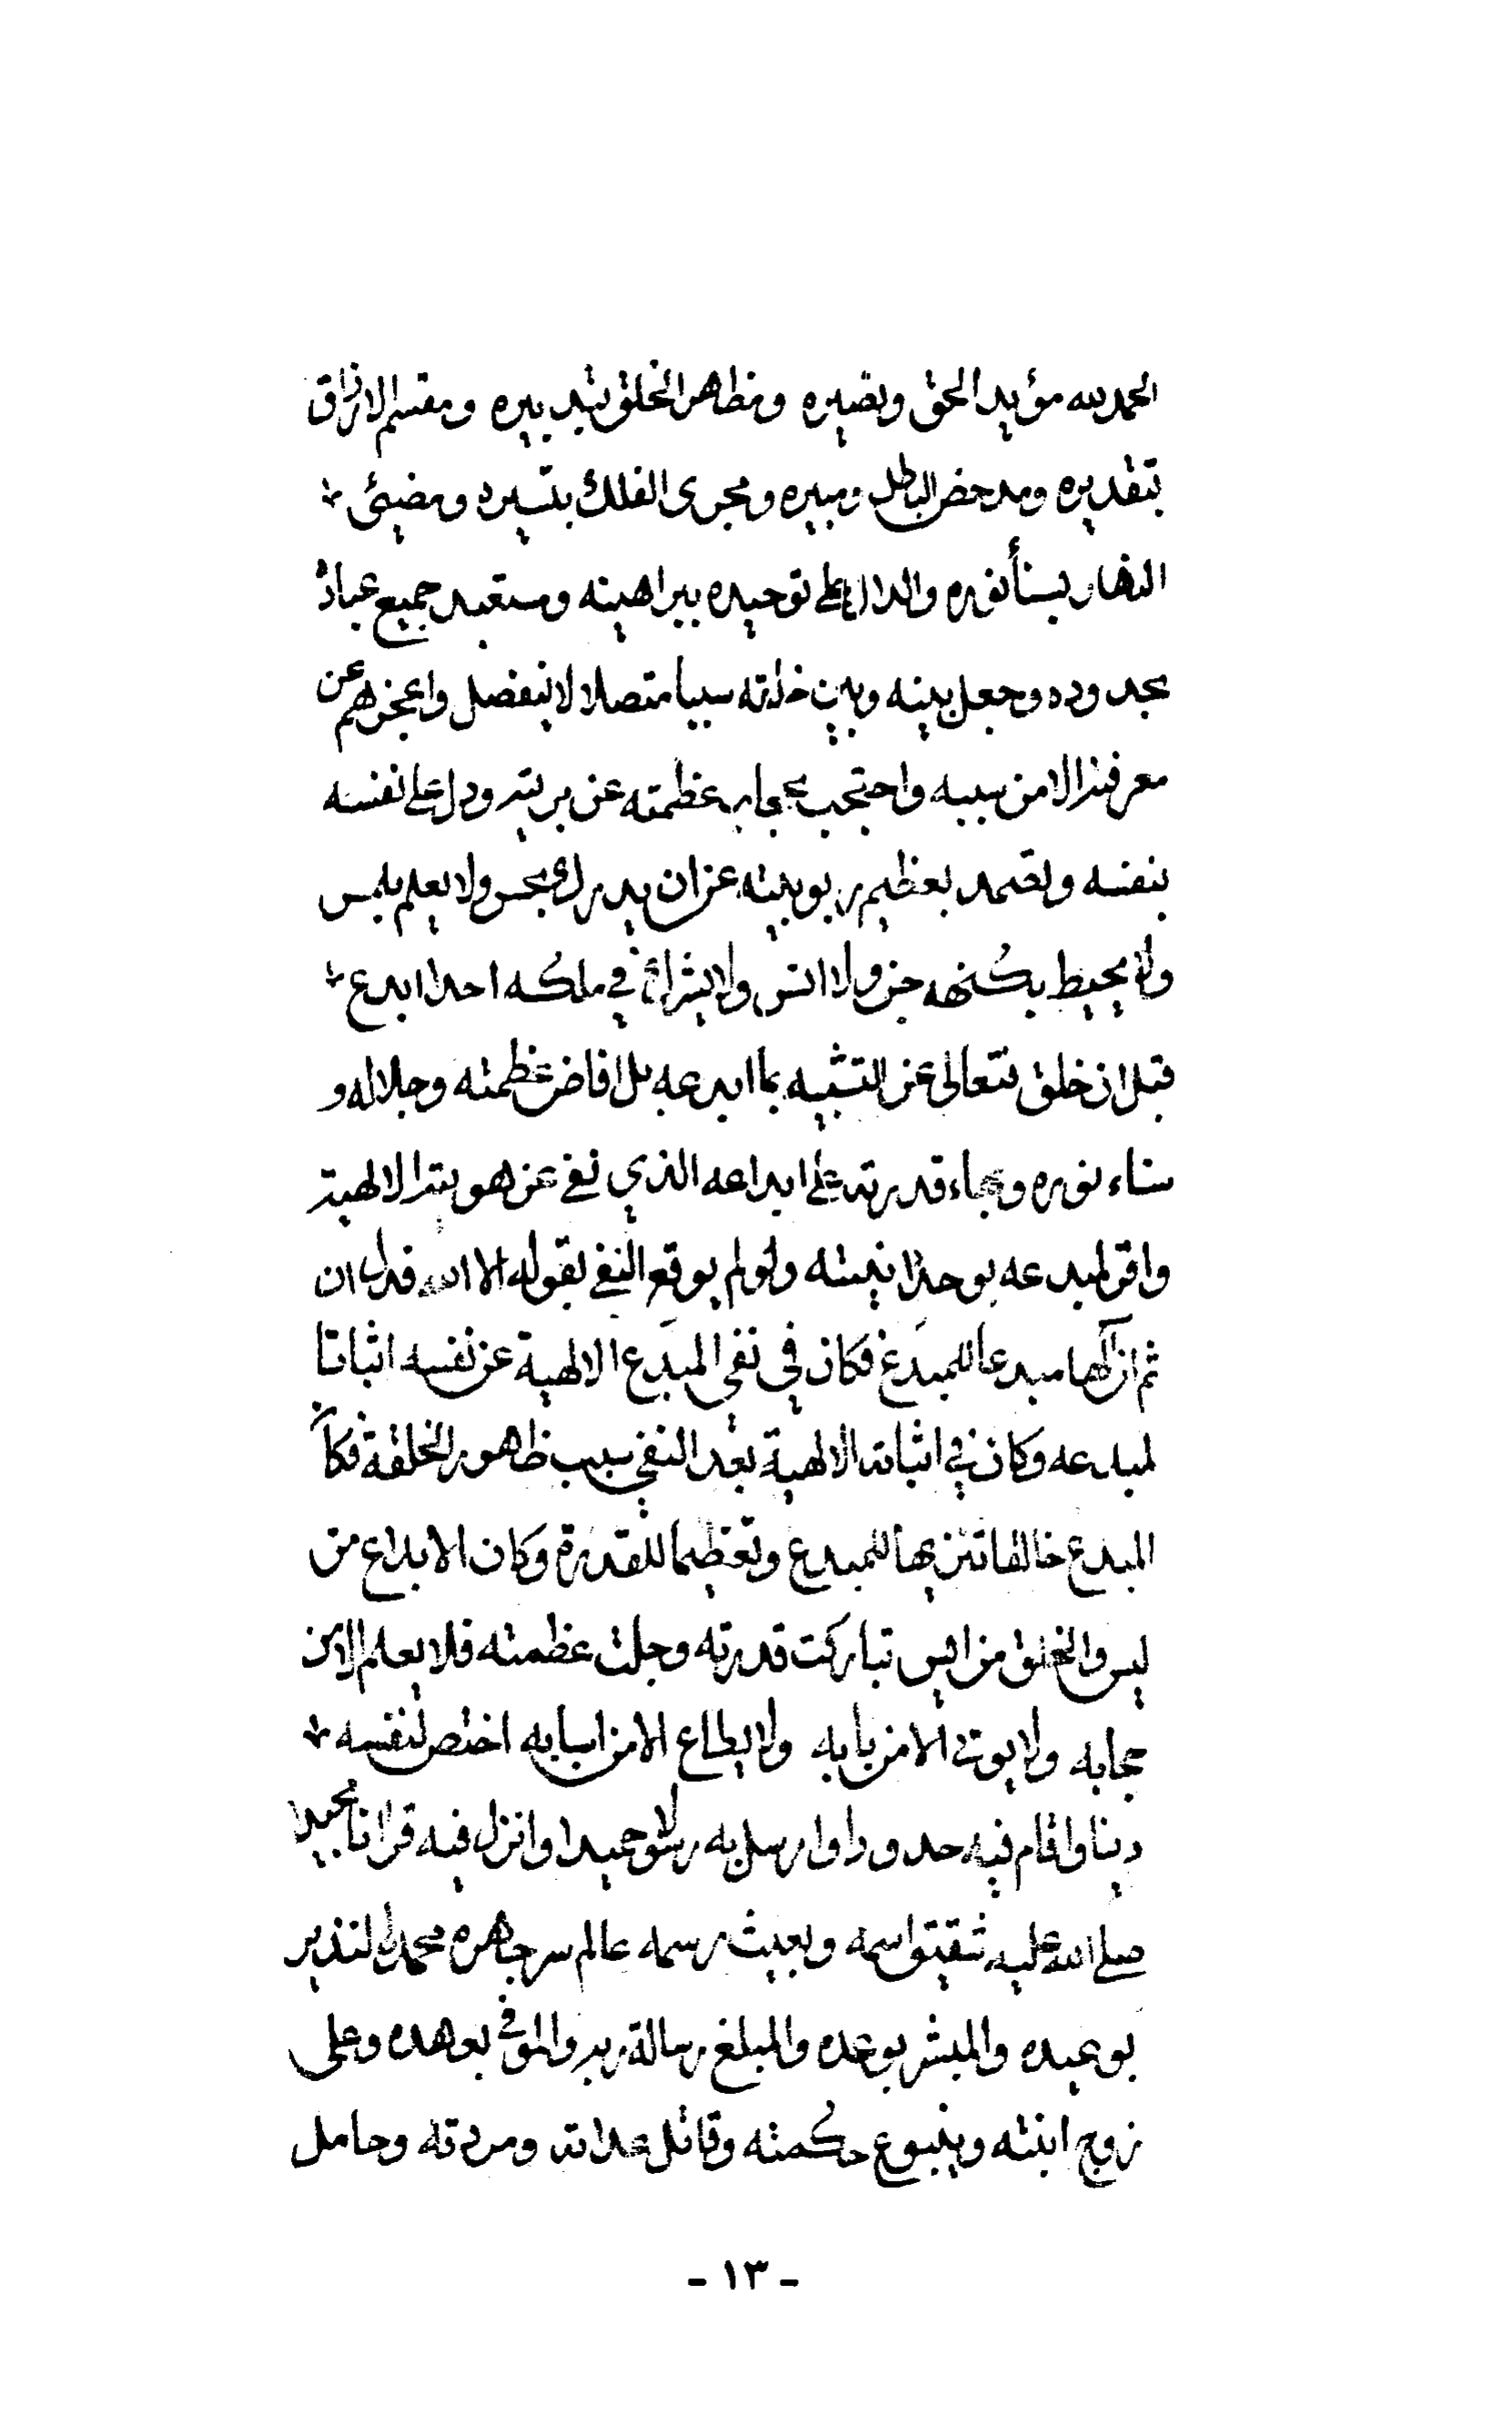 الحمد لله مؤيد الحق ونصيره ومظاهر الخلق بتدبيره ومقسم الارزاق
بتقديره ومدحض الباطل ومبيره ومجرى الفلك بتسييره ومضيئ
النهار بسنأ نوره والدال على توحيده ببراهينه ومستعبد جميع عباده
بحدوده وجعل بينه وبين خلقه سببا متصلا لا ينفصل واعجزهم عن
معرفته الا من سببه واحتجب بحجاب عظمته عن بريته ودل على نفسه
بنفسه وتعمد بعظيم ربوبيته عز ان يدرك بحس ولا يعلم بلمس
ولا يحيط بكنهه جن ولا انس ولا يشرك في ملكه احدا ابدع
قبل ان خلق فتعالى عن التشبيه بما ابدعه بل افاض عظمته وجلاله و
سناء نوره وبهاء قدرته على ابداعه الذي نفى عن هويته الالهية
واقر لمبدعه بوحدانيته ولو لم يوقع النفي بقوله الا الله فدل ان
ثم الها مبدعا للمبدع فكان في نفي المبدع الالهية عن نفسه اثباتا
لمبدعه وكان في اثباته الالهية بعد النفي سبب ظهور الخلقة فكان
المبدع خالقا تنزيها للمبدع وتعظيما للقدرة وكان الابداع من
ليس والخلق من ايس تباركت قدرته وجلت عظمته فلا يعلم الا من
حجابه ولا يوتى الا من بابه ولا يطاع الا من اسبابه اختص لنفسه
دينا واقام فيه حدودا وارسل به رسولا حميدا وانزل فيه قرانا مجيدا
صلى الله عليه شقيق اسمه وبعيث رسمه عالم سر جاهره محمد النذير
بوعيده والمبشر بوعده والمبلغ رسالة ربه والموفي بعهده وعلى
زوج ابنته وينبوع حكمته وقاتل عداته ومردته وحامل
- ١٣ -